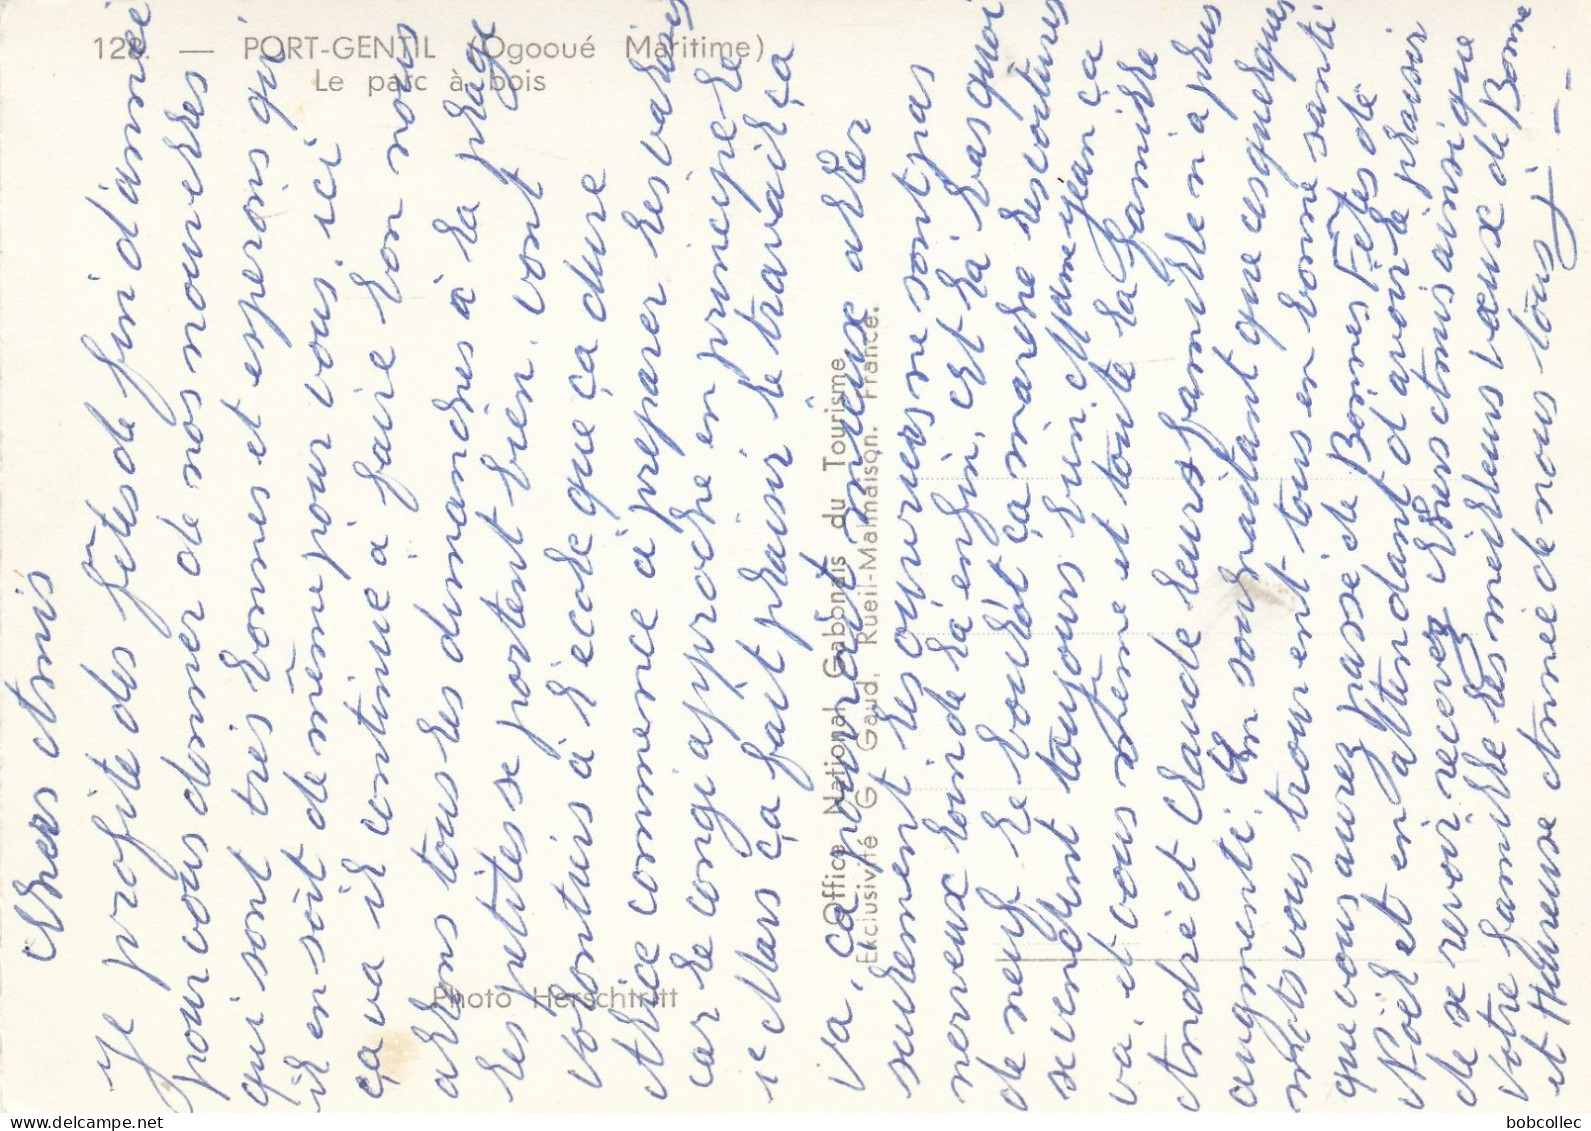 128. — PORT-GENTIL (Ogooué Maritime)
Le parc à bois
Photo Herschtritt
Office National Gabonais du Tourisme
Exclusivité G. Gaud, Rueil-Malmaison. France.
Chers Amis
Je profite des fêtes de fin d'année
pour vous donner de nos nouvelles
qui sont très bonnes et esperons qu'
il en soit de même pour vous, ici
ça va il continue à faire bon nous
allons tous les dimanches à la plage
les petites se portent bien, vont
volontiers à l'école que ça dure
Alice commence à préparer les valises
car le congé approche en principe le
ie Mars ça fait plaisir le travail ça
va, ça pourrait mieux aller
seulement les ouvriers ne sont pas
nerveux loin de là enfin, c'est là bas quoi
de neuf le boulot ça marche les voitures
se vendent toujours bien, Mame jean ça
va, et vous même et toute la famille
André et Claude leurs famille n'a plus
augmenté. En souhaitant que ces quelques
mots vous trouvent tous en bonne santé
que vous aurez passé de Bonnes Fêtes de
Noël et en attendant d'avoir le plaisir
de se revoir recevez chers Amis ainsi que
Votre famille les meilleurs vœux de Bonne
et Heureuse Année de nous tous
bobcollec